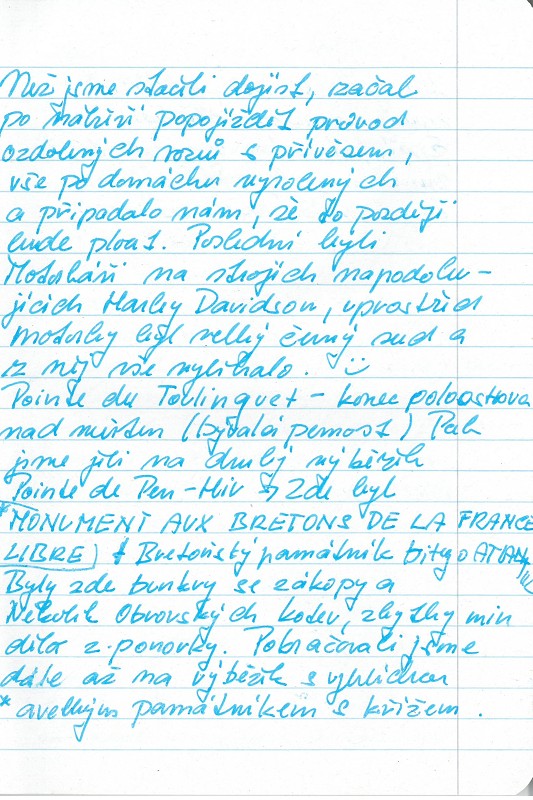 Než jsme stačili dojíst, začal
po nábřeží popojíždět průvod
ozdobných vozů s přívěsem,
vše po domácku vyrobených
a připadalo nám, že to později
bude plout. Poslední byli
Motorkáři na strojích napodobu-
jících Harley Davidson, uprostřed
motorky byl velký černý sud a
z něj vše vylíhalo. :-)
Pointe du Toulinguet - konec poloostrova
nad mořem (bývalá pevnost) Pak
jsme jeli na druhý výběžek
Pointe de Pen-Hir → Zde byl
*MONUMENT AUX BRETONS DE LA FRANCE
LIBRE) Bretoňský památník bitvy o ATLAN
Byly zde bunkry se zákopy a
Několik Obrovských kotev, zbytky min
díla z ponorky. Pokračovali jsme
dále až na výběžek s vyhlídkou
* a velkým památníkem s křížem.